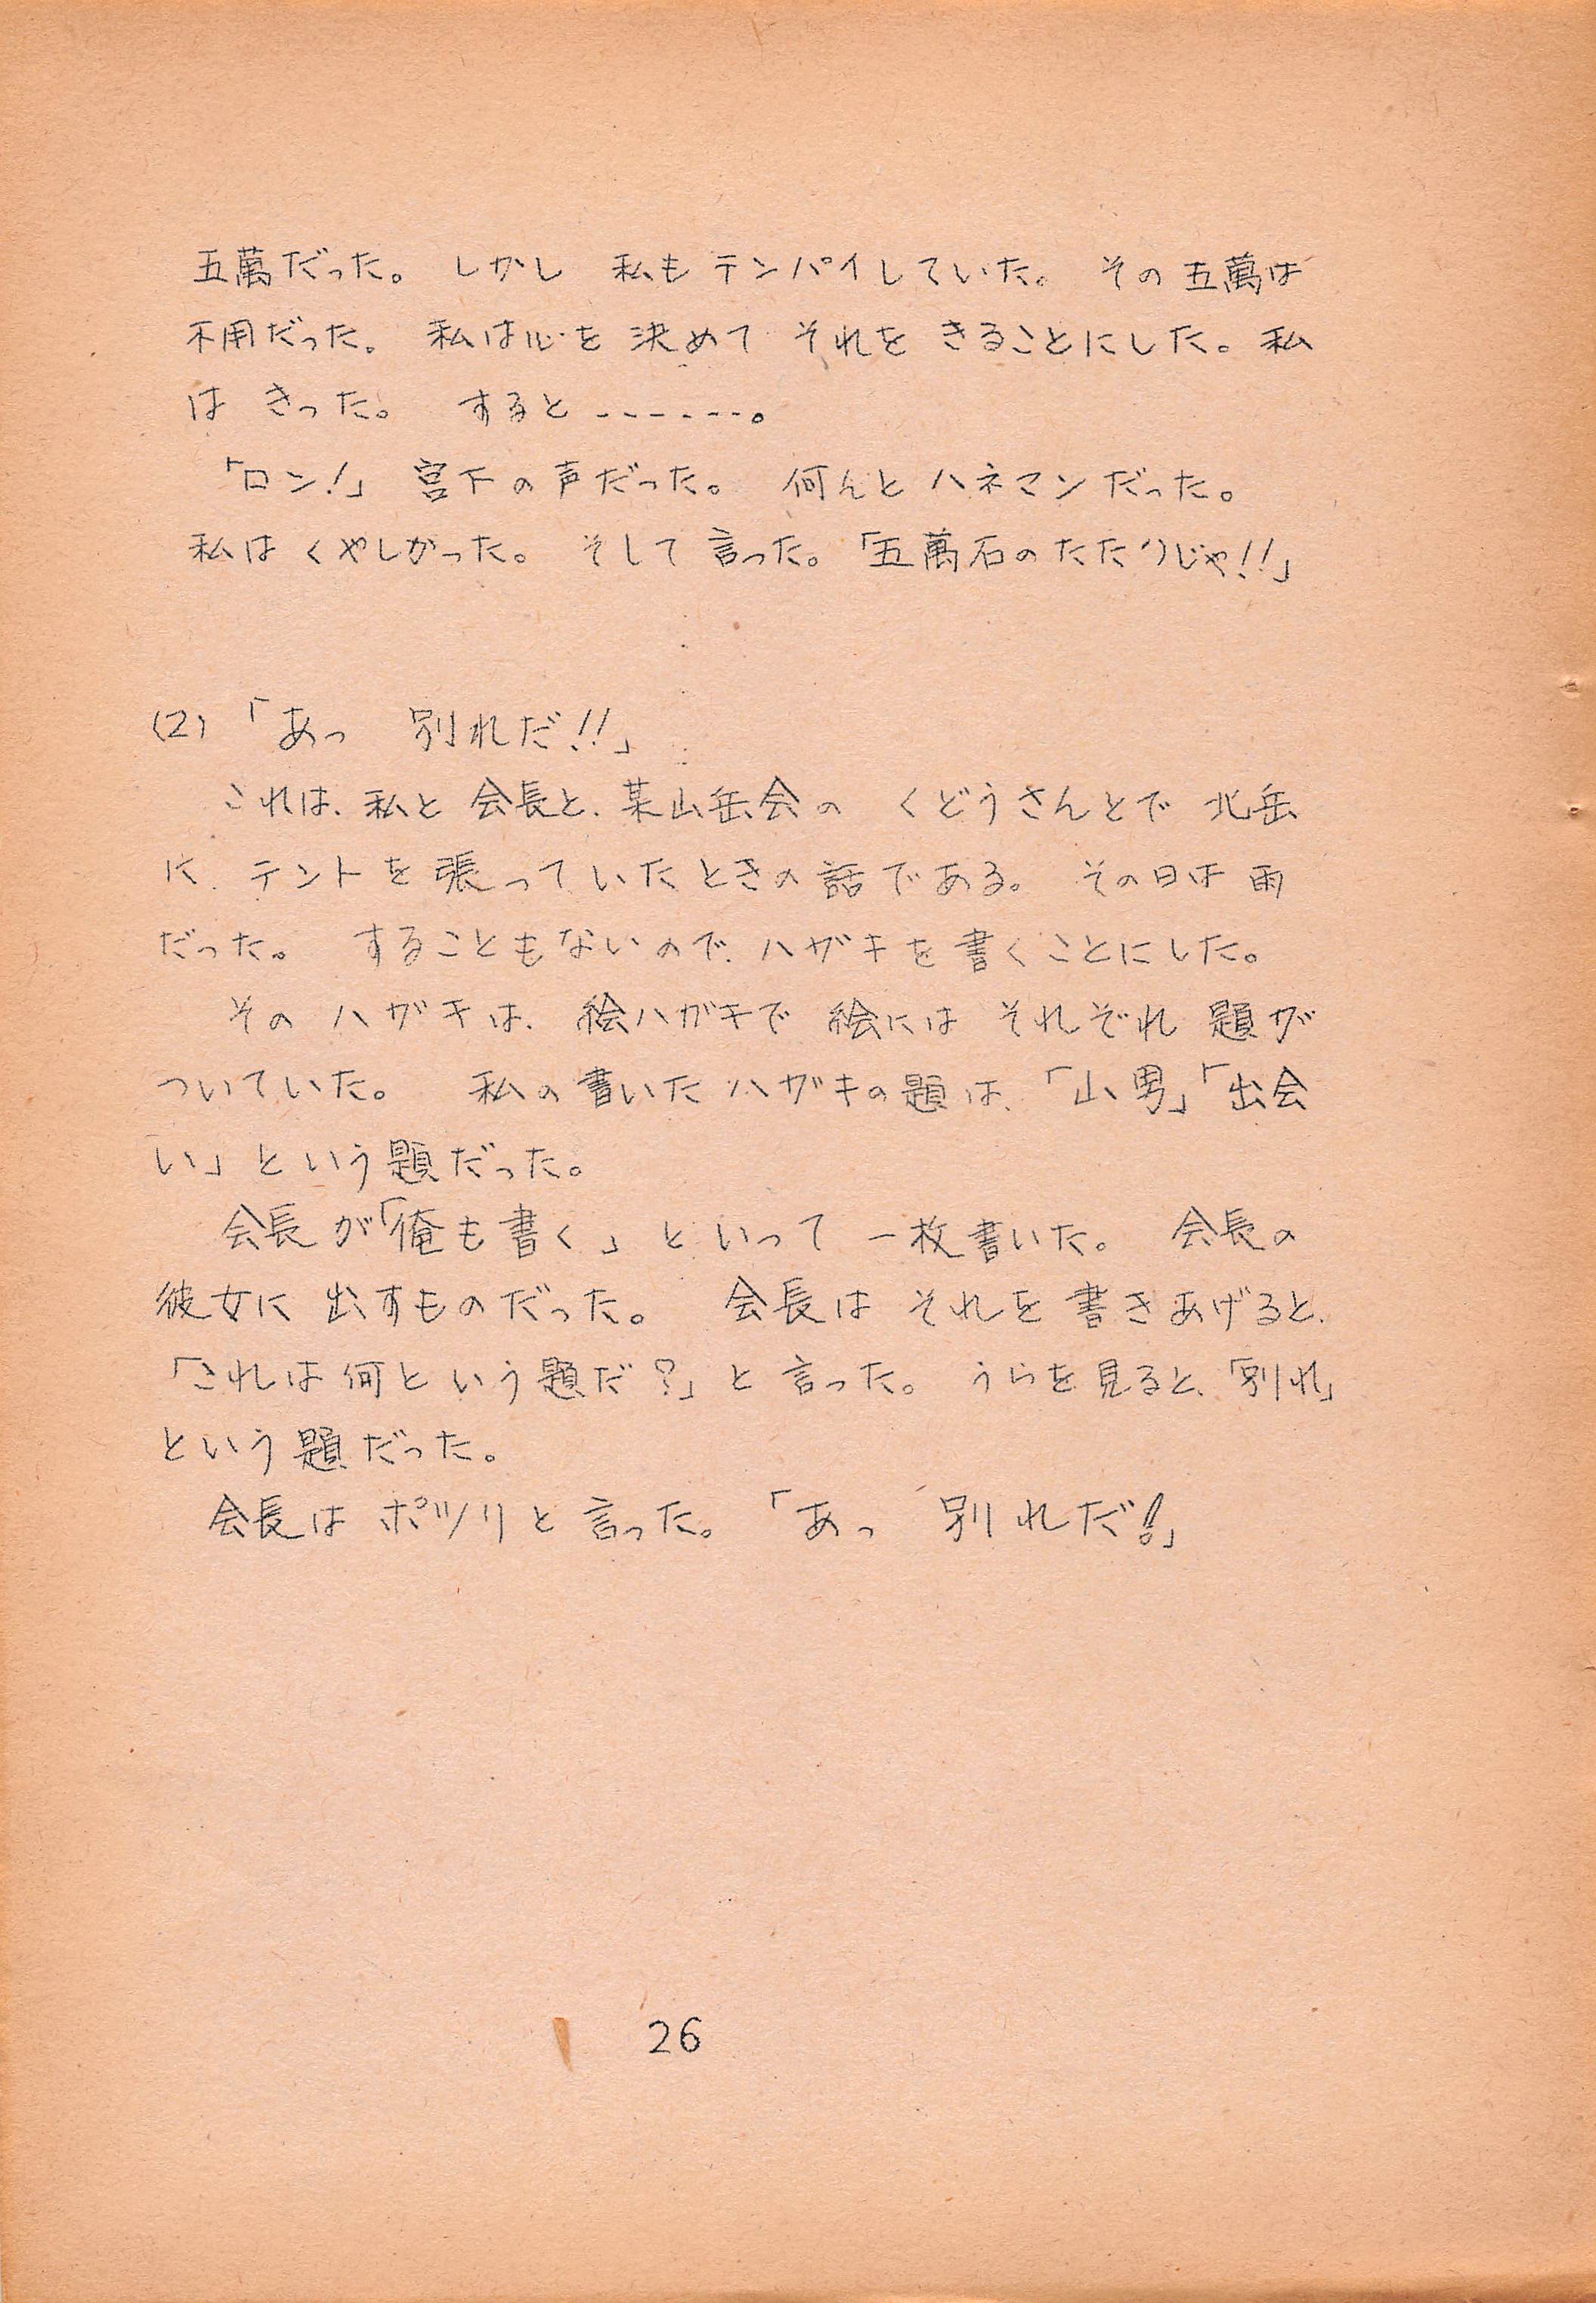 五萬だった。 しかし 私も テンパイしていた。 その 五萬は
不用だった。 私は心を 決めて それを きることにした。私
は きった。 すると ‐‐‐‐‐‐。
「ロン!」 宮下の声だった。 何んと ハネマンだった。
私は くやしかった。 そして 言った。「五萬石のたたりじゃ!!」
(2) 「あっ 別れだ!!」
これは、私と 会長と、某山岳会の くどうさんとで 北岳
に、テントを張っていたときの話である。 その日は雨
だった。 することもないので、ハガキを書くことにした。
その ハガキは、絵ハガキで 絵には それぞれ 題が
ついていた。 私の書いたハガキの題は、「山男」「出会
い」という題だった。
会長が「俺も書く」といって 一枚書いた。 会長の
彼女に 出すものだった。 会長は それを 書きあげると、
「これは何という題だ?」と 言った。 うらを見ると、「別れ」
という題だった。
会長は ポツリと 言った。 「あっ 別れだ!」
26